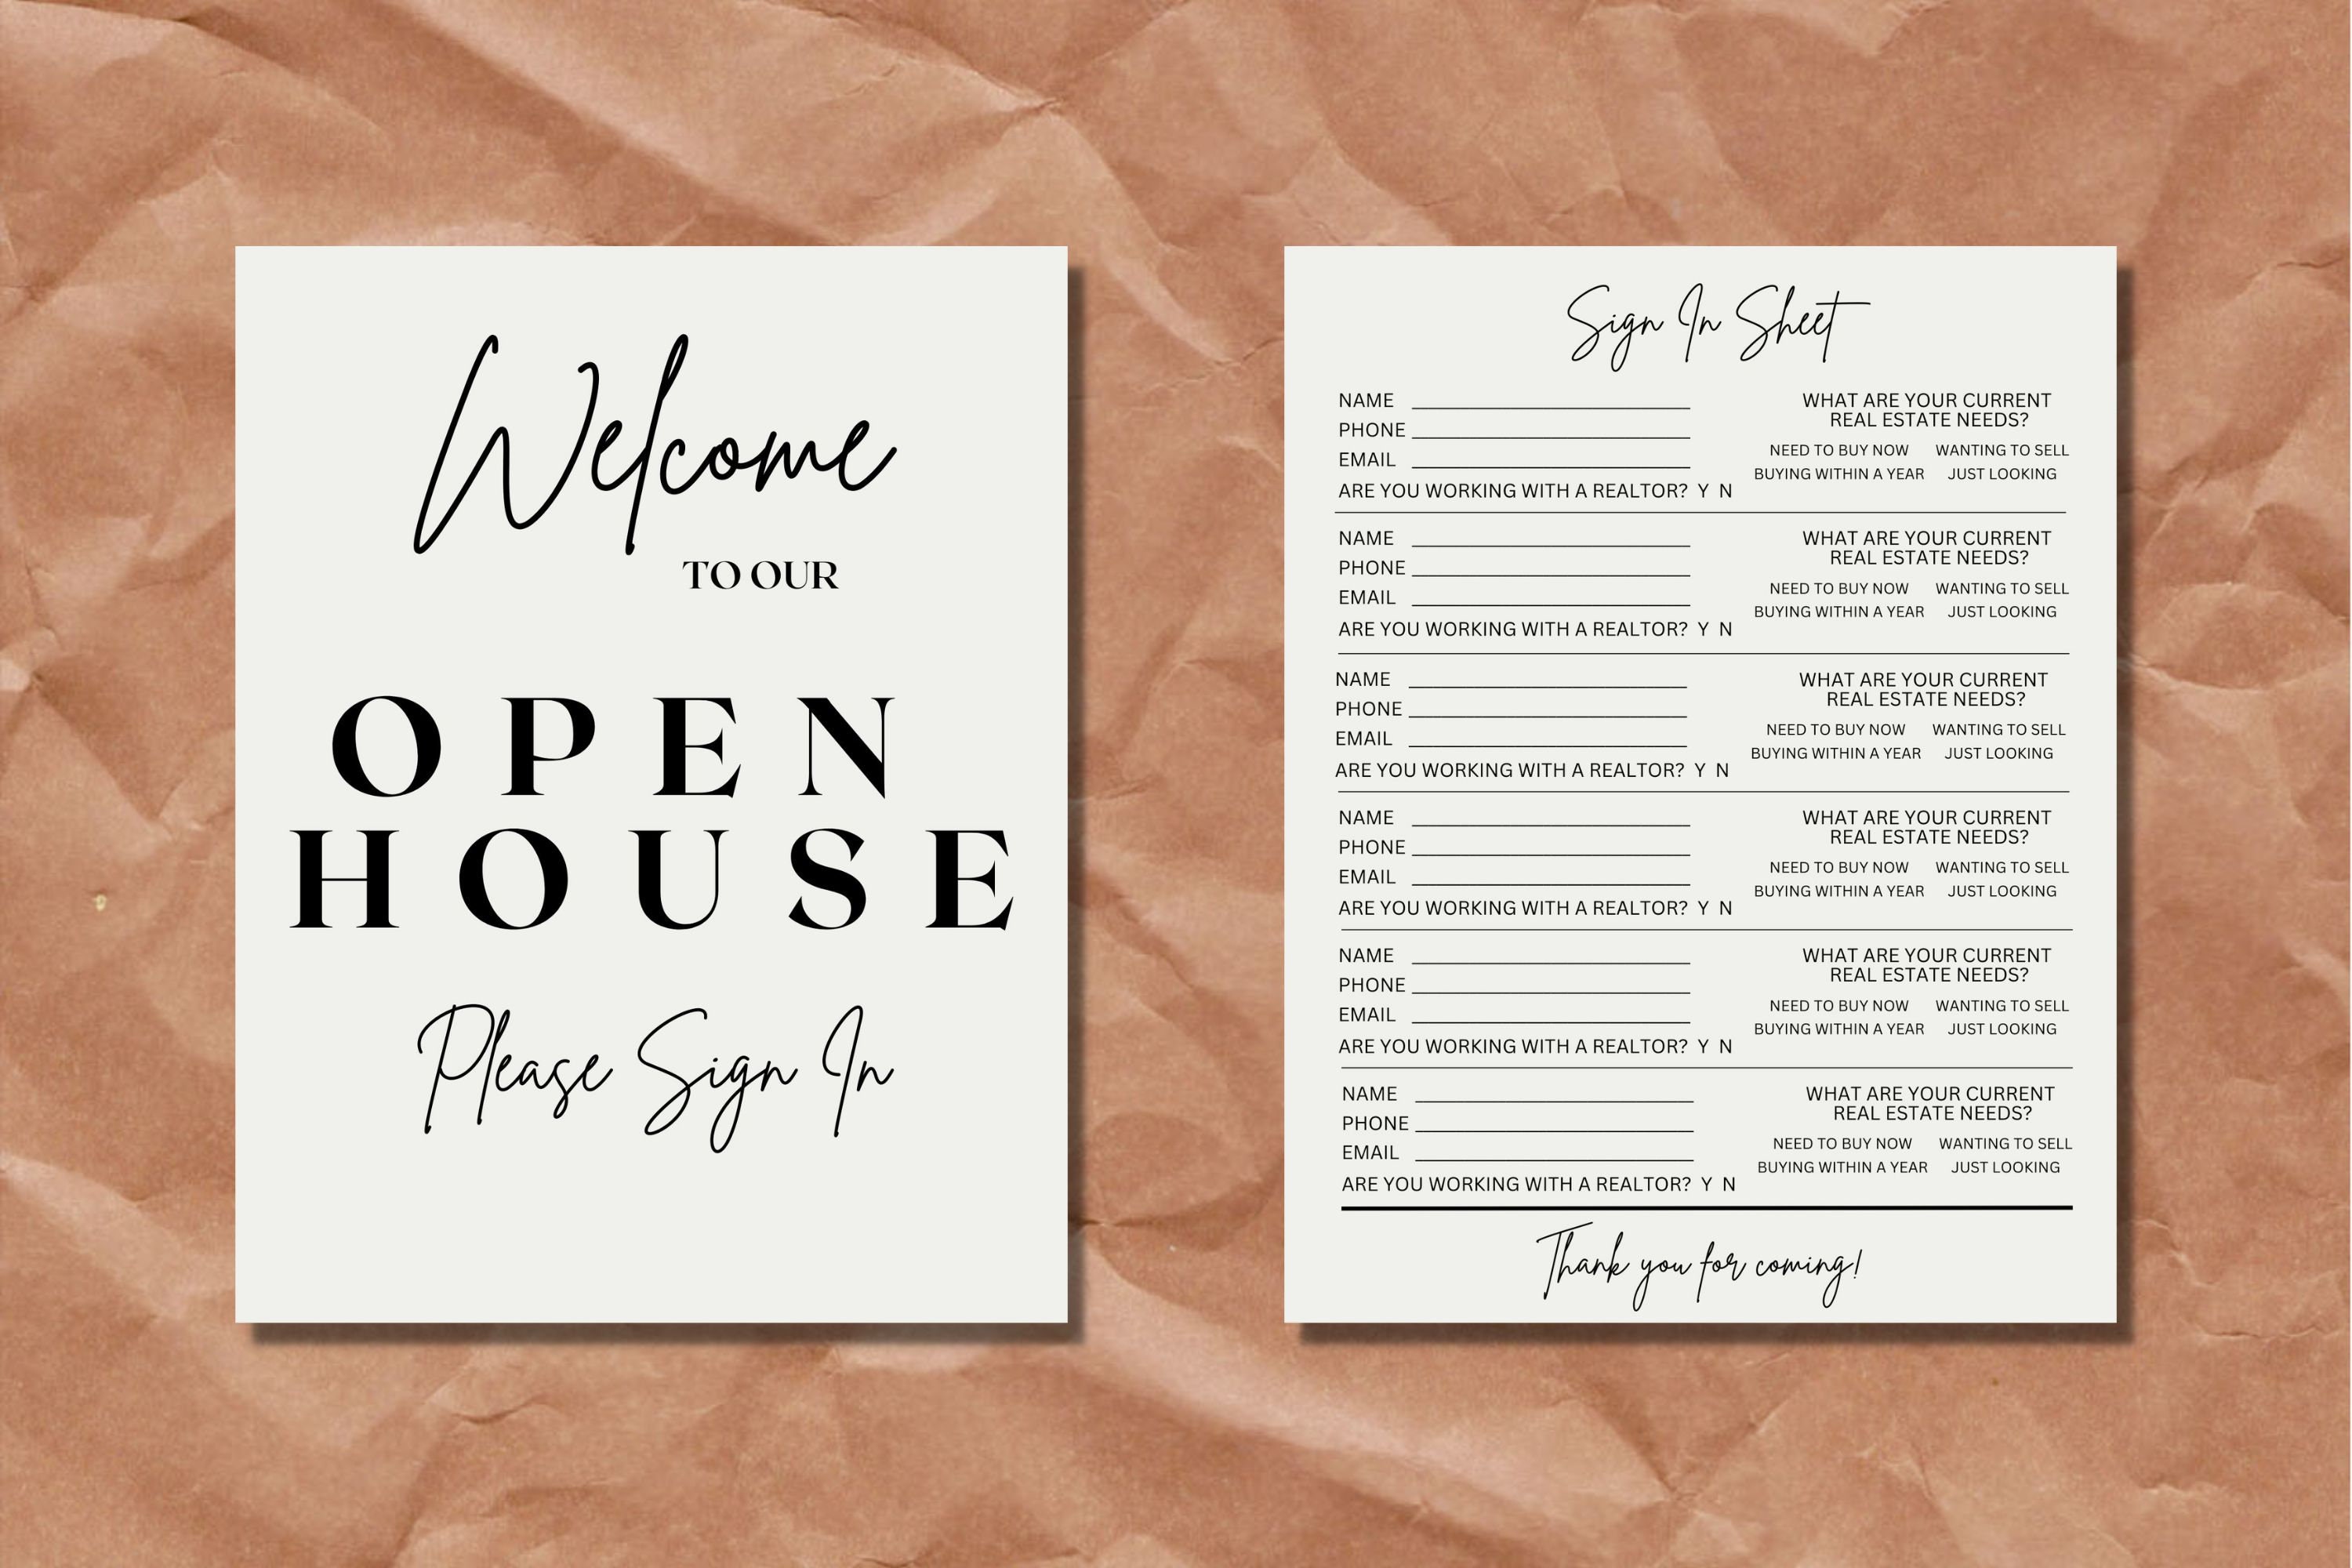 Welcome
TO OUR
OPEN
HOUSE
Please Sign In
Sign In Sheet
NAME
PHONE
EMAIL
ARE YOU WORKING WITH A REALTOR? Y N
WHAT ARE YOUR CURRENT
REAL ESTATE NEEDS?
NEED TO BUY NOW WANTING TO SELL
BUYING WITHIN A YEAR JUST LOOKING
NAME
PHONE
EMAIL
ARE YOU WORKING WITH A REALTOR? Y N
WHAT ARE YOUR CURRENT
REAL ESTATE NEEDS?
NEED TO BUY NOW WANTING TO SELL
BUYING WITHIN A YEAR JUST LOOKING
NAME
PHONE
EMAIL
ARE YOU WORKING WITH A REALTOR? Y N
WHAT ARE YOUR CURRENT
REAL ESTATE NEEDS?
NEED TO BUY NOW WANTING TO SELL
BUYING WITHIN A YEAR JUST LOOKING
NAME
PHONE
EMAIL
ARE YOU WORKING WITH A REALTOR? Y N
WHAT ARE YOUR CURRENT
REAL ESTATE NEEDS?
NEED TO BUY NOW WANTING TO SELL
BUYING WITHIN A YEAR JUST LOOKING
NAME
PHONE
EMAIL
ARE YOU WORKING WITH A REALTOR? Y N
WHAT ARE YOUR CURRENT
REAL ESTATE NEEDS?
NEED TO BUY NOW WANTING TO SELL
BUYING WITHIN A YEAR JUST LOOKING
NAME
PHONE
EMAIL
ARE YOU WORKING WITH A REALTOR? Y N
WHAT ARE YOUR CURRENT
REAL ESTATE NEEDS?
NEED TO BUY NOW WANTING TO SELL
BUYING WITHIN A YEAR JUST LOOKING
Thank you for coming!